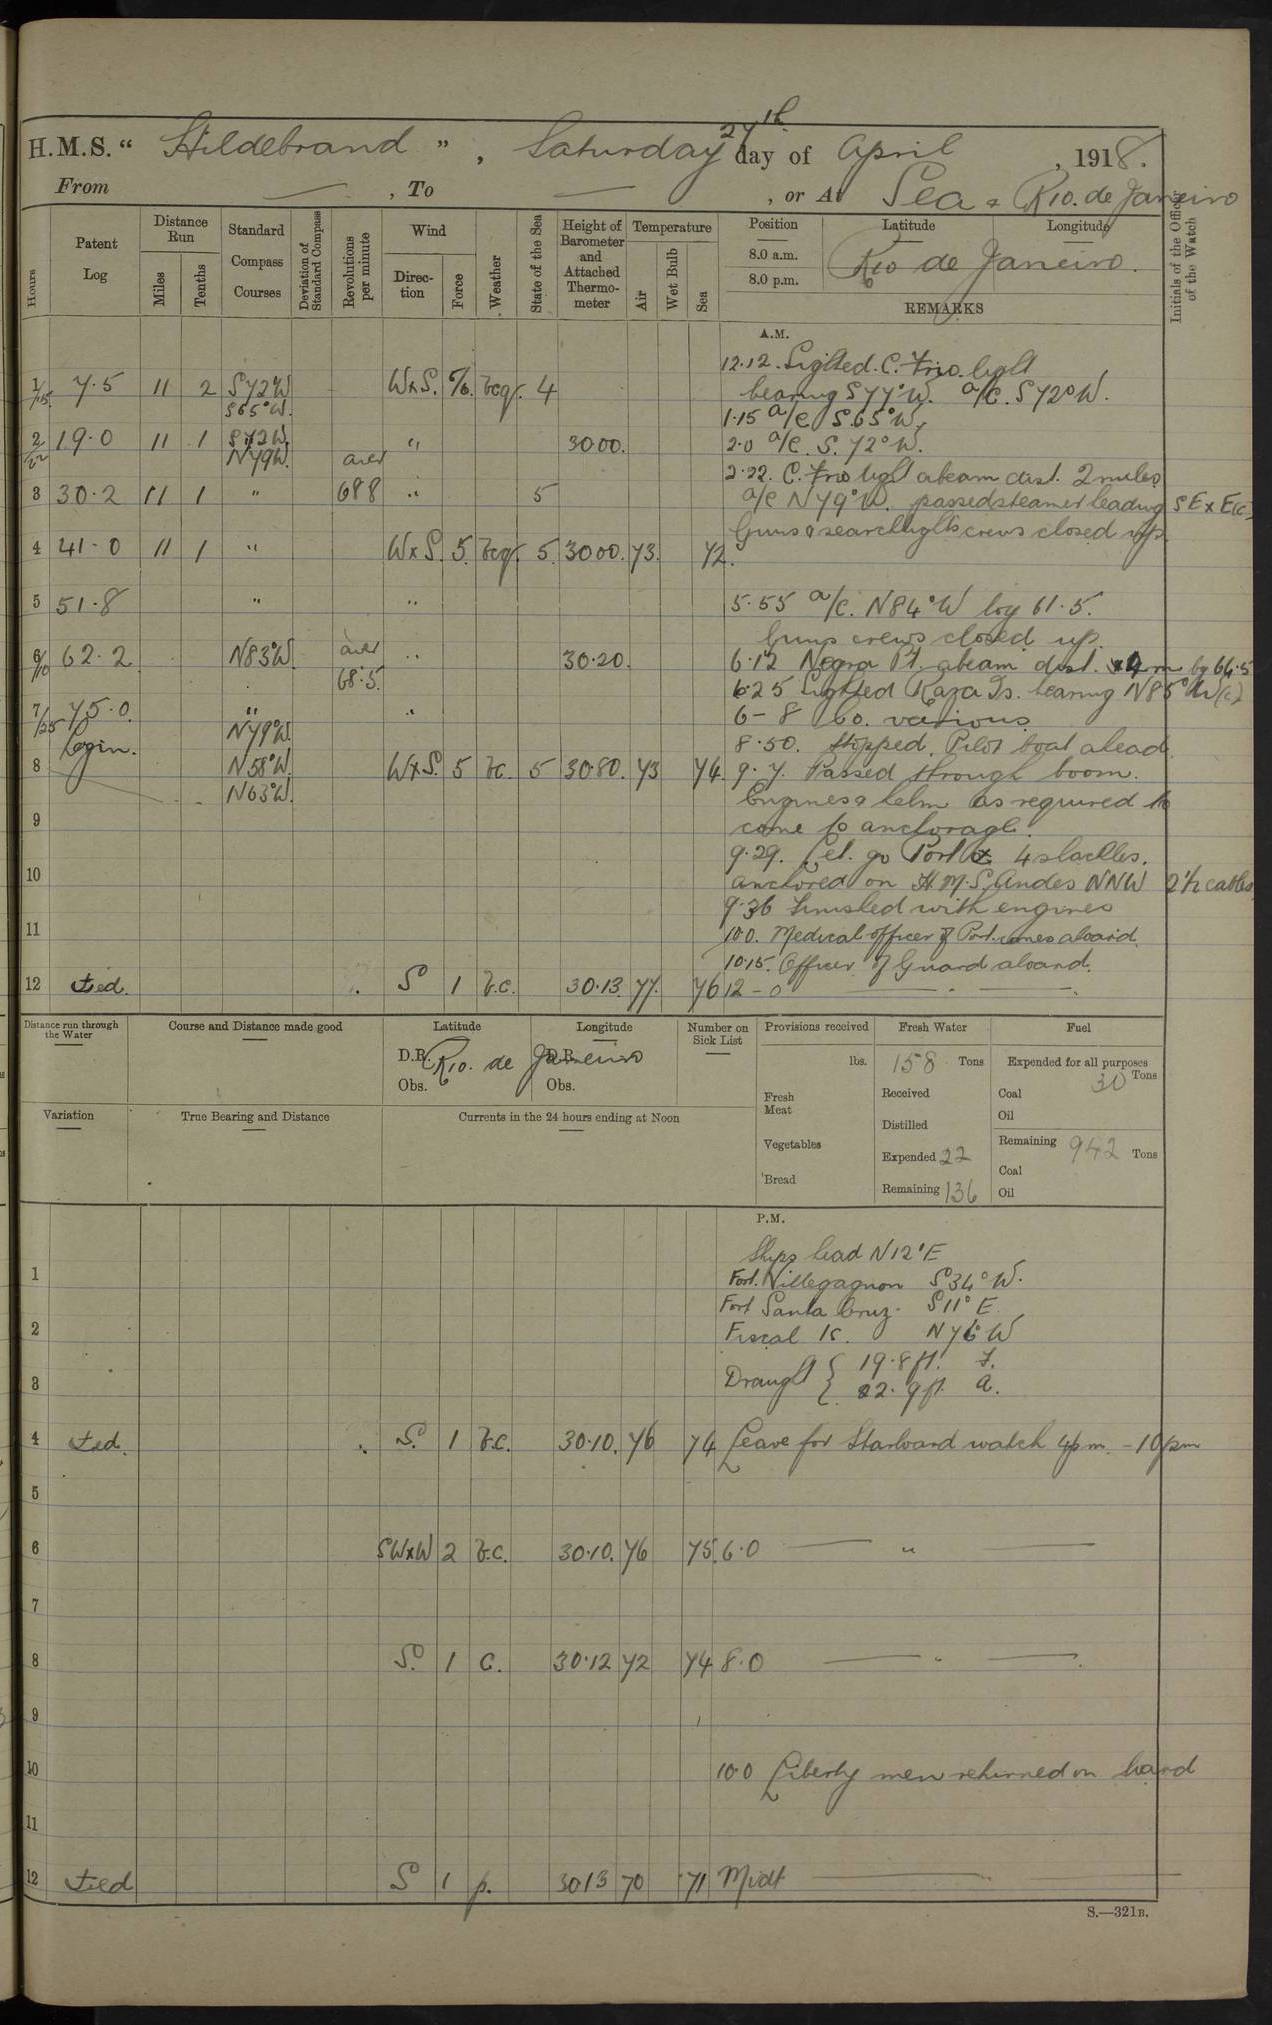 H.M.S. " Hildebrand ", Saturday 27th day of April, 1918.
From — , To — , or At Sea & Rio. de Janeiro
Hours
Patent Log
Distance Run
Miles
Tenths
Standard Compass Courses
Deviation of Standard Compass
Revolutions per minute
Wind
Direction
Force
Weather
State of the Sea
Height of Barometer and Attached Thermometer
Temperature
Air
Wet Bulb
Sea
Position
8.0 a.m.
8.0 p.m.
Latitude
Longitude
Rio de Janeiro.
REMARKS
Initials of the Officer of the Watch
A.M.
12.12. Sighted. C. Frio. light
1/1.15 7.5 11 2 S72°W WxS. 5/6. bcqr. 4 bearing S77°W. a/c. S72°W.
S65°W. 1.15 a/c S.65°W.
2/22 19.0 11 1 S72W. " 3000. 2.0 a/c. S. 72°W.
N79W. aver 2.22. C. Frio light abeam dist. 2 miles
3 30.2 11 1 " 688 " 5 a/c N79°W. passed steamer heading SExE(c)
Guns & searchlights crews closed up.
4 41.0 11 1 " WxS. 5. bcqr. 5. 3000. 73. 72.
5 51.8 " " 5.55 a/c. N84°W log 61.5.
Guns crews closed up.
6/10 62.2 N83°W. aver " 30.20. 6.12 Negra Pt. abeam dist. 4m by 64.5
68.5. 6.25 Sighted Raza Is. bearing N85°W(c)
7/25 75.0. " " 6–8 Co. various
Login. N79°W. 8.50. Stopped. Pilot boat ahead
8 N58°W. WxS. 5 bc. 5 30.80. 73 74. 9.7. Passed through boom.
N63°W. Engines & helm as required to
9 come to anchorage.
9.29. Let. go Port 4 shackles.
10 anchored on H.M.S. Andes NNW 2½ cables
9.36 Finished with engines
11 10.0. Medical officer of Port comes aboard.
10.15. Officer of Guard aboard.
12 tied. S 1 b.c. 30.13 77. 76 12–0 — " —
Distance run through the Water
Course and Distance made good
Latitude
Longitude
D.R. Rio. de Janeiro D.R.
Obs. Obs.
Number on Sick List
Provisions received
lbs.
Fresh Meat
Vegetables
Bread
Fresh Water
158 Tons
Received
Distilled
Expended 22
Remaining 136
Fuel
Expended for all purposes
30 Tons
Coal
Oil
Remaining 942 Tons
Coal
Oil
Variation
True Bearing and Distance
Currents in the 24 hours ending at Noon
P.M.
Ships head N12°E
1 Fort. Villegagnon S34°W.
Fort Santa Cruz. S11°E
2 Fiscal Is. N76°W
Draught { 19.8 ft. F.
3 22.9 ft. A.
4 tied. S. 1 b.c. 30.10. 76 74 Leave for Starboard watch 4pm. – 10pm
5
6 SWxW 2 b.c. 30.10. 76 75. 6.0 — " —
7
8 S. 1 c. 30.12 72 74 8.0 — " —
9
10 10.0 Liberty men returned on board
11
12 tied S 1 p. 3013 70 71 Midt —
S.—321B.